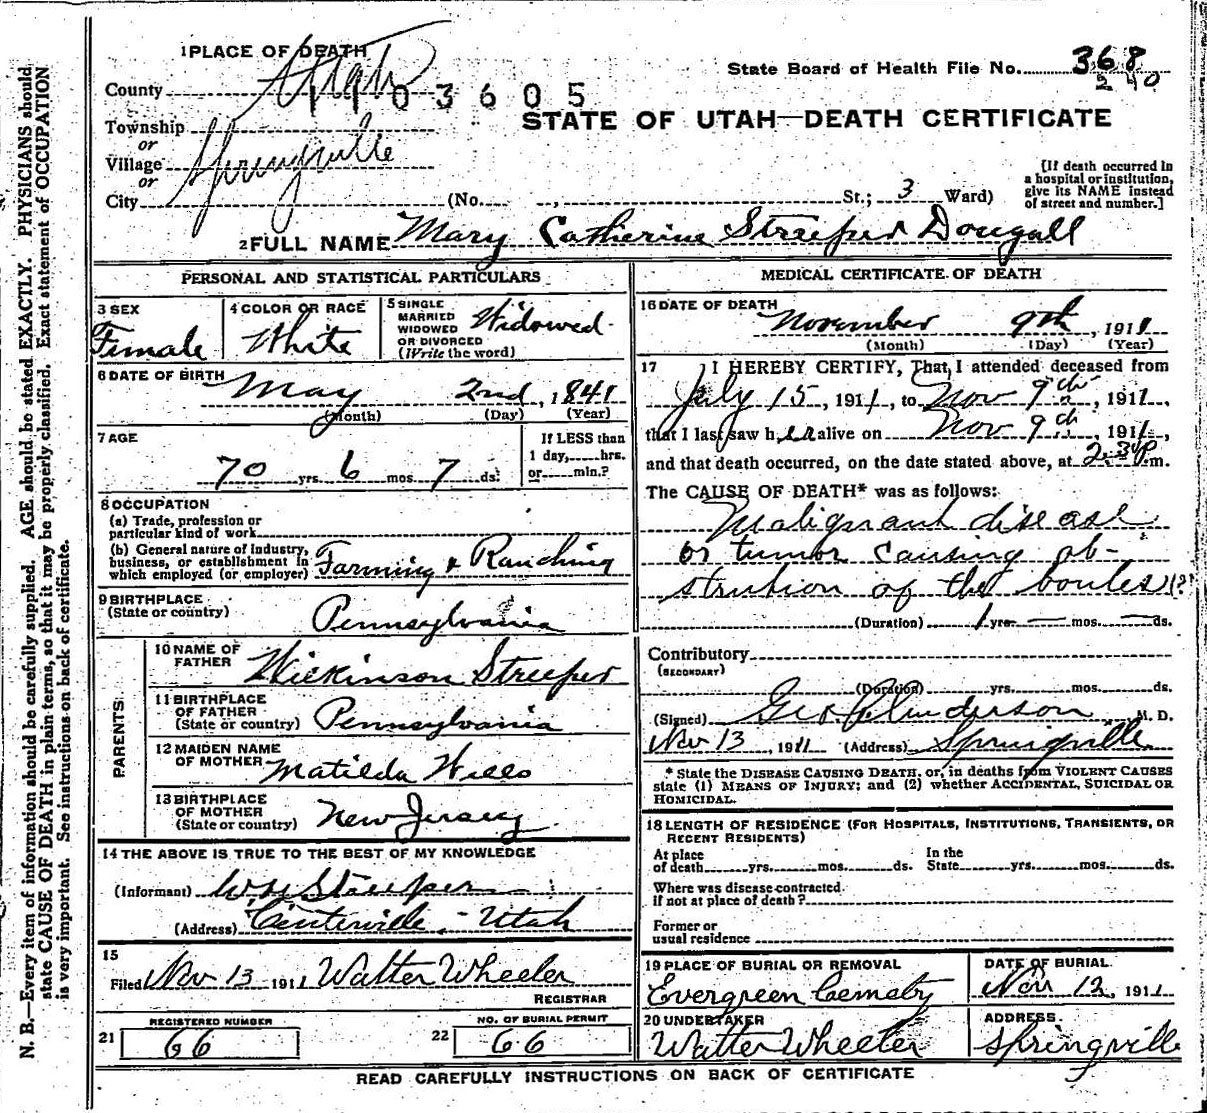 1 PLACE OF DEATH
State Board of Health File No. 368
240
County Utah 03605
STATE OF UTAH—DEATH CERTIFICATE
Township
or
Village Springville
or
City (No. St.; 3 Ward)
[If death occurred in
a hospital or institution,
give its NAME instead
of street and number.]
2 FULL NAME Mary Catherine Streeper Dougall
PERSONAL AND STATISTICAL PARTICULARS
3 SEX
Female
4 COLOR OR RACE
White
5 SINGLE
MARRIED
WIDOWED
OR DIVORCED
(Write the word)
Widowed
6 DATE OF BIRTH
May 2nd, 1841
(Month) (Day) (Year)
7 AGE
70 yrs. 6 mos. 7 ds.
If LESS than
1 day, hrs.
or min.?
8 OCCUPATION
(a) Trade, profession or
particular kind of work
(b) General nature of industry,
business, or establishment in
which employed (or employer) Farming & Ranching
9 BIRTHPLACE
(State or country)
Pennsylvania
PARENTS
10 NAME OF
FATHER Wilkinson Streeper
11 BIRTHPLACE
OF FATHER
(State or country) Pennsylvania
12 MAIDEN NAME
OF MOTHER Matilda Wells
13 BIRTHPLACE
OF MOTHER
(State or country) New Jersey
14 THE ABOVE IS TRUE TO THE BEST OF MY KNOWLEDGE
(Informant) Wm Streeper
(Address) Centerville, Utah
15
Filed Nov 13 1911 Walter Wheeler
REGISTRAR
REGISTERED NUMBER
21 66
NO. OF BURIAL PERMIT
22 66
MEDICAL CERTIFICATE OF DEATH
16 DATE OF DEATH
November 9th, 1911
(Month) (Day) (Year)
17 I HEREBY CERTIFY, That I attended deceased from
July 15, 1911, to Nov 9th, 1911,
that I last saw her alive on Nov 9th, 1911,
and that death occurred, on the date stated above, at 2:30 P.m.
The CAUSE OF DEATH* was as follows:
Malignant disease
or tumor causing ob-
struction of the boules (?)
(Duration) 1 yrs. — mos. — ds.
Contributory
(SECONDARY)
(Duration) yrs. mos. ds.
(Signed) Geo Anderson, M. D.
Nov 13, 1911 (Address) Springville
* State the DISEASE CAUSING DEATH, or, in deaths from VIOLENT CAUSES
state (1) MEANS OF INJURY; and (2) whether ACCIDENTAL, SUICIDAL OR
HOMICIDAL.
18 LENGTH OF RESIDENCE (FOR HOSPITALS, INSTITUTIONS, TRANSIENTS, OR
RECENT RESIDENTS)
At place
of death yrs. mos. ds.
In the
State yrs. mos. ds.
Where was disease contracted
if not at place of death?
Former or
usual residence
19 PLACE OF BURIAL OR REMOVAL
Evergreen Cemetry
DATE OF BURIAL
Nov 12, 1911
20 UNDERTAKER
Walter Wheeler
ADDRESS
Springville
READ CAREFULLY INSTRUCTIONS ON BACK OF CERTIFICATE
N. B.—Every item of information should be carefully supplied. AGE should be stated EXACTLY. PHYSICIANS should
state CAUSE OF DEATH in plain terms, so that it may be properly classified. Exact statement of OCCUPATION
is very important. See instructions on back of certificate.